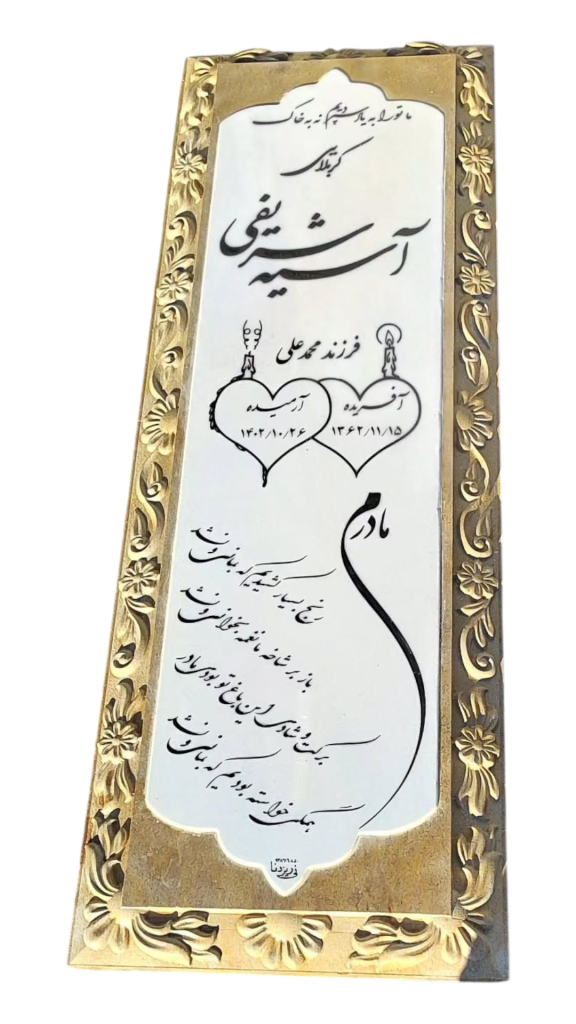 ما تو را به یاد سپردیم نه به خاک
کربلائی
آسیه شریفی
فرزند محمدعلی
آفریده
۱۳۶۲/۱۱/۱۵
آرمیده
۱۴۰۲/۱۰/۲۶
مادرم
رنج بسیار کشیدیم که بمانی و نشد
باز بر شاخه ما نغمه بخوانی و نشد
برکت و شادی این باغ تو بودی مادر
همگی خواسته بودیم که بمانی و نشد
نی ریز دنا